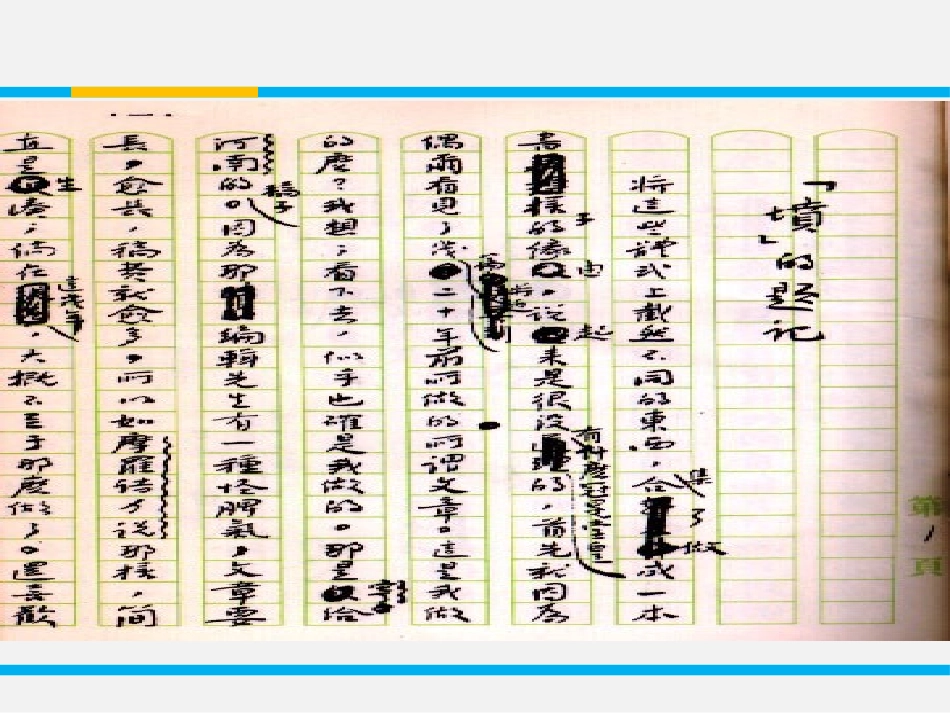 第1頁
「墳」的題記
將這些體式上截然不同的東西，合集了做成一本
書樣子的緣由，說起來是很沒有什麼冠冕堂皇的，首先就因為
偶爾看見了幾篇將近二十年前所做的所謂文章。這是我做
的麼？我想，看下去，似乎也確是我做的。那是寄給
河南的稿子。因為那編輯先生有一種怪脾氣，文章要
長，愈長，稿費就愈多。所以如摩羅詩力說那樣，簡
直是生湊，倘在這幾年，大概不至于那麼做了。還喜歡